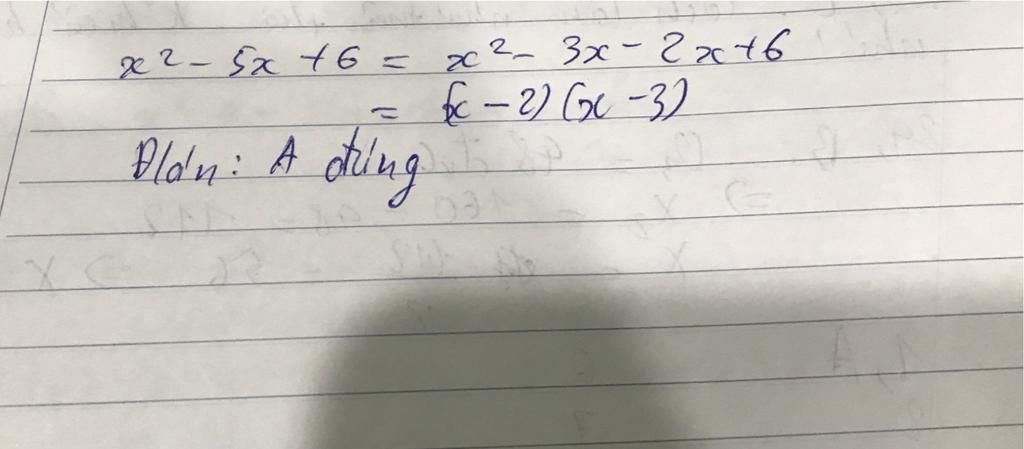 x² - 5x + 6 = x² - 3x - 2x + 6
= (x - 2) (x - 3)
A đúng